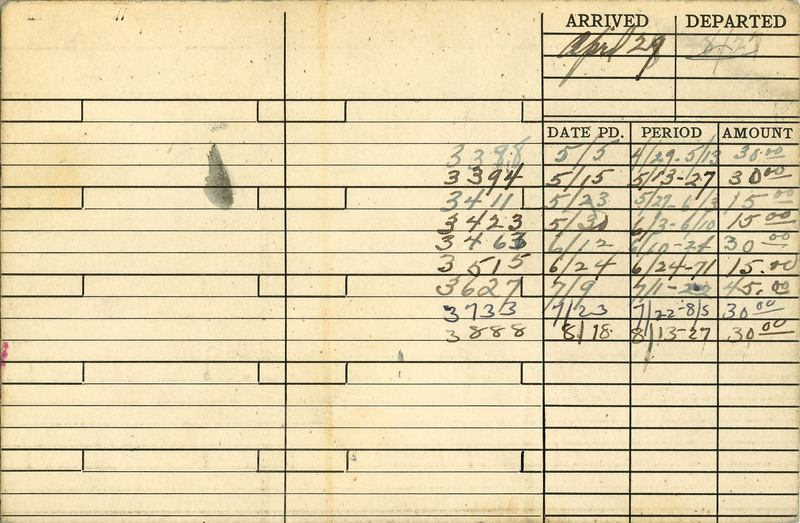 ARRIVED DEPARTED
April 29 8/27
DATE PD. PERIOD AMOUNT
3388 5/5 4/29-5/13 30.00
3394 5/15 5/13-27 30.00
3411 5/23 5/27-6/3 15.00
3423 5/30 6/3-6/10 15.00
3463 6/12 6/10-24 30.00
3515 6/24 6/24-71 15.00
3627 7/9 7/1-22 45.00
3733 7/23 7/22-8/5 30.00
3888 8/18 8/13-27 30.00